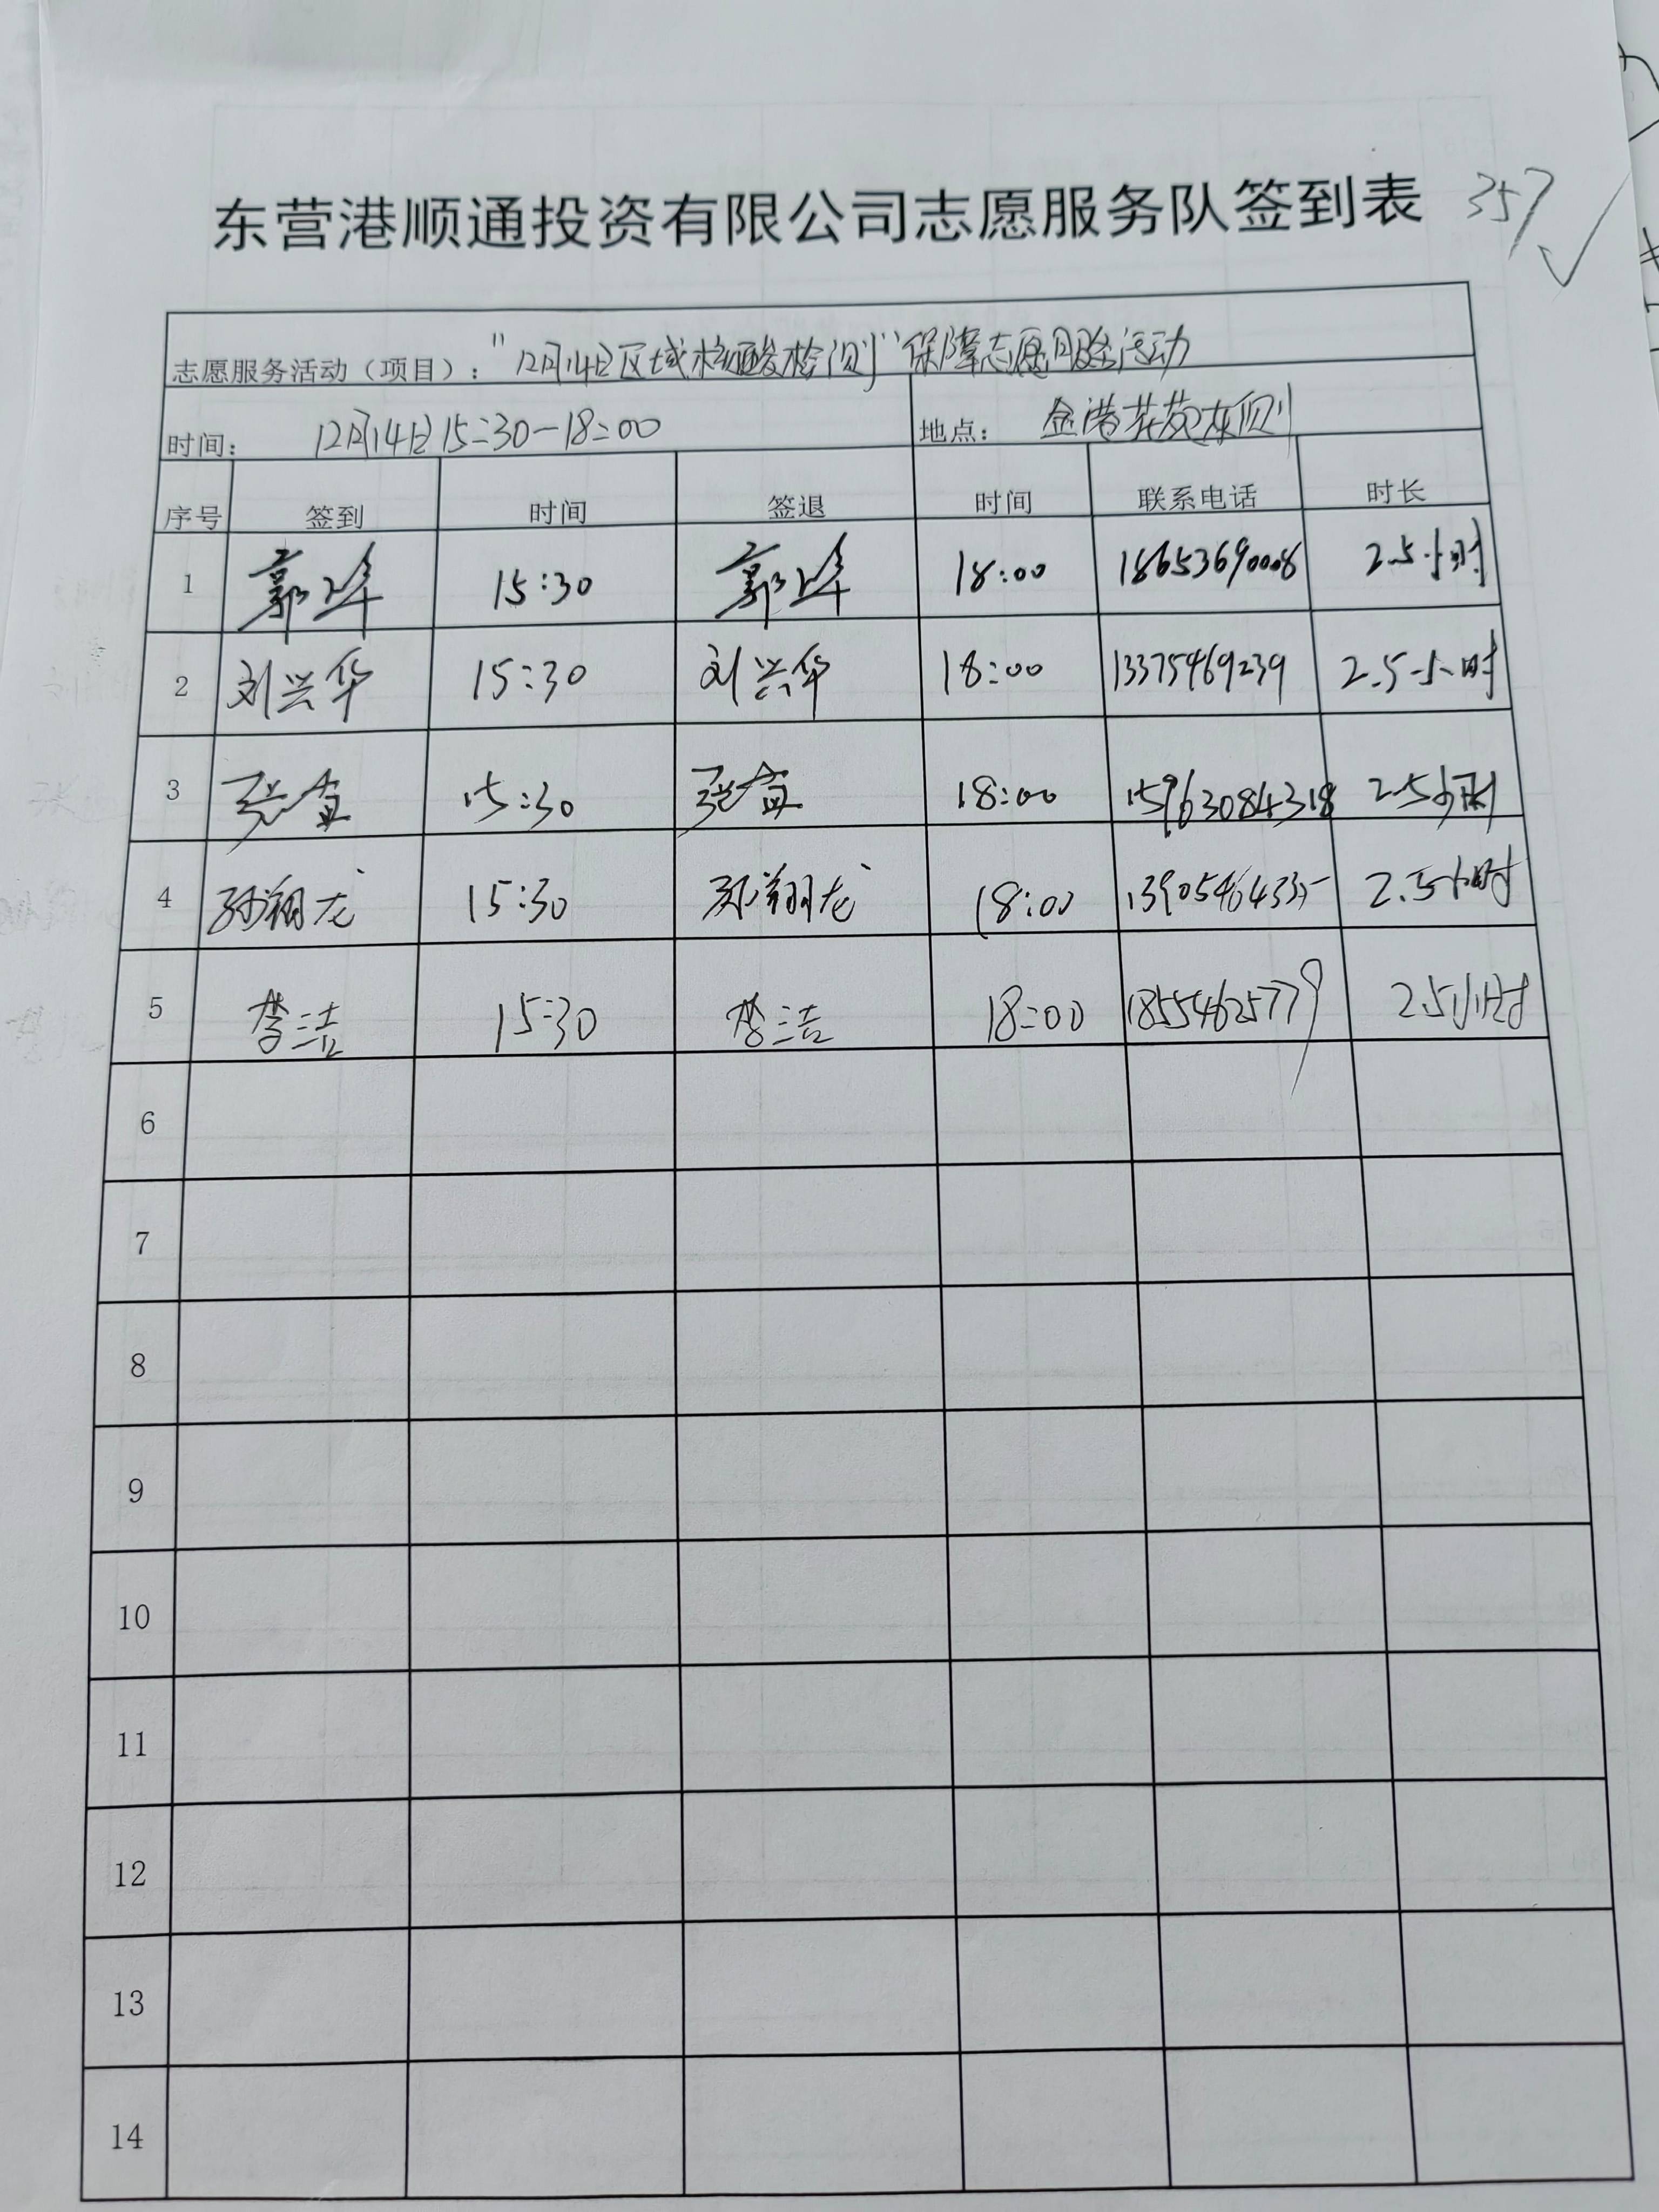 东营港顺通投资有限公司志愿服务队签到表 357 ✓
志愿服务活动（项目）："12月14日区域核酸检测"保障志愿服务活动
时间： 12月14日15:30-18:00 地点： 金港花苑东侧
序号 签到 时间 签退 时间 联系电话 时长
1 郭 15:30 郭 18:00 18653690008 2.5小时
2 刘兴华 15:30 刘兴华 18:00 13375469239 2.5小时
3 张 15:30 张 18:00 15963084318 2.5小时
4 翔龙 15:30 翔龙 18:00 2.5小时
5 李洁 15:30 李洁 18:00 18554625779 2.5小时
6
7
8
9
10
11
12
13
14